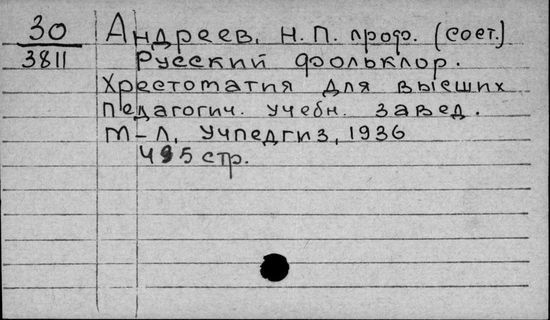 30 Андреев, Н. П. проф. (сост.)
3811 Русский фольклор.
Хрестоматия для высших
педагогич. учебн. завед.
М-Л, Учпедгиз, 1936
стр.